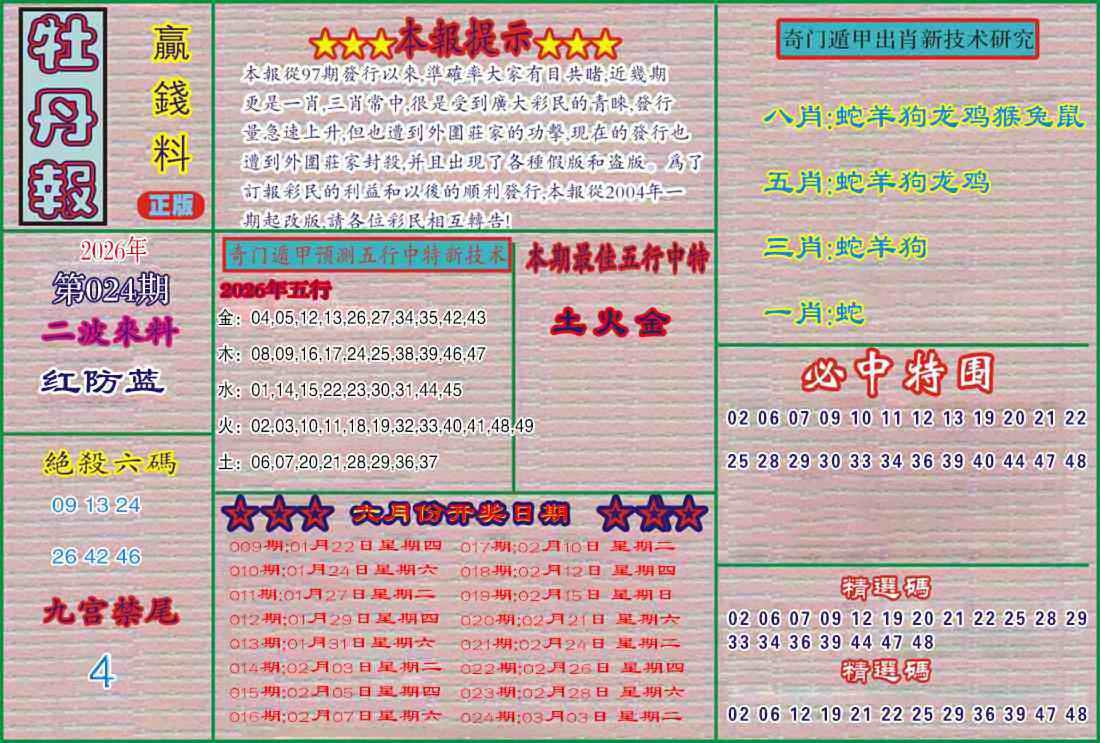 牡丹報
贏錢料
正版
★★★本報提示★★★
本報從97期發行以來,準確率大家有目共睹,近幾期
更是一肖,三肖常中,很是受到廣大彩民的青睞,發行
量急速上升,但也遭到外圍莊家的功擊,現在的發行也
遭到外圍莊家封殺,并且出現了各種假版和盜版。爲了
訂報彩民的利益和以後的順利發行,本報從2004年一
期起改版,請各位彩民相互轉告!
奇门遁甲出肖新技术研究
八肖:蛇羊狗龙鸡猴兔鼠
五肖:蛇羊狗龙鸡
三肖:蛇羊狗
一肖:蛇
2026年
第024期
二波來料
红防蓝
奇门遁甲预测五行中特新技术
2026年五行
金: 04,05,12,13,26,27,34,35,42,43
木: 08,09,16,17,24,25,38,39,46,47
水: 01,14,15,22,23,30,31,44,45
火: 02,03,10,11,18,19,32,33,40,41,48,49
土: 06,07,20,21,28,29,36,37
本期最佳五行中特
土火金
必中特围
02 06 07 09 10 11 12 13 19 20 21 22
25 28 29 30 33 34 36 39 40 44 47 48
絕殺六碼
09 13 24
26 42 46
九宫禁尾
4
☆☆☆ 六月份开奖日期 ☆☆☆
009期:01月22日星期四 017期:02月10日 星期二
010期:01月24日星期六 018期:02月12日 星期四
011期:01月27日星期二 019期:02月15日 星期日
012期:01月29日星期四 020期:02月21日 星期六
013期:01月31日星期六 021期:02月24日 星期二
014期:02月03日星期二 022期:02月26日 星期四
015期:02月05日星期四 023期:02月28日 星期六
016期:02月07日星期六 024期:03月03日 星期二
精選碼
02 06 07 09 12 19 20 21 22 25 28 29
33 34 36 39 44 47 48
精選碼
02 06 12 19 21 22 25 29 36 39 47 48